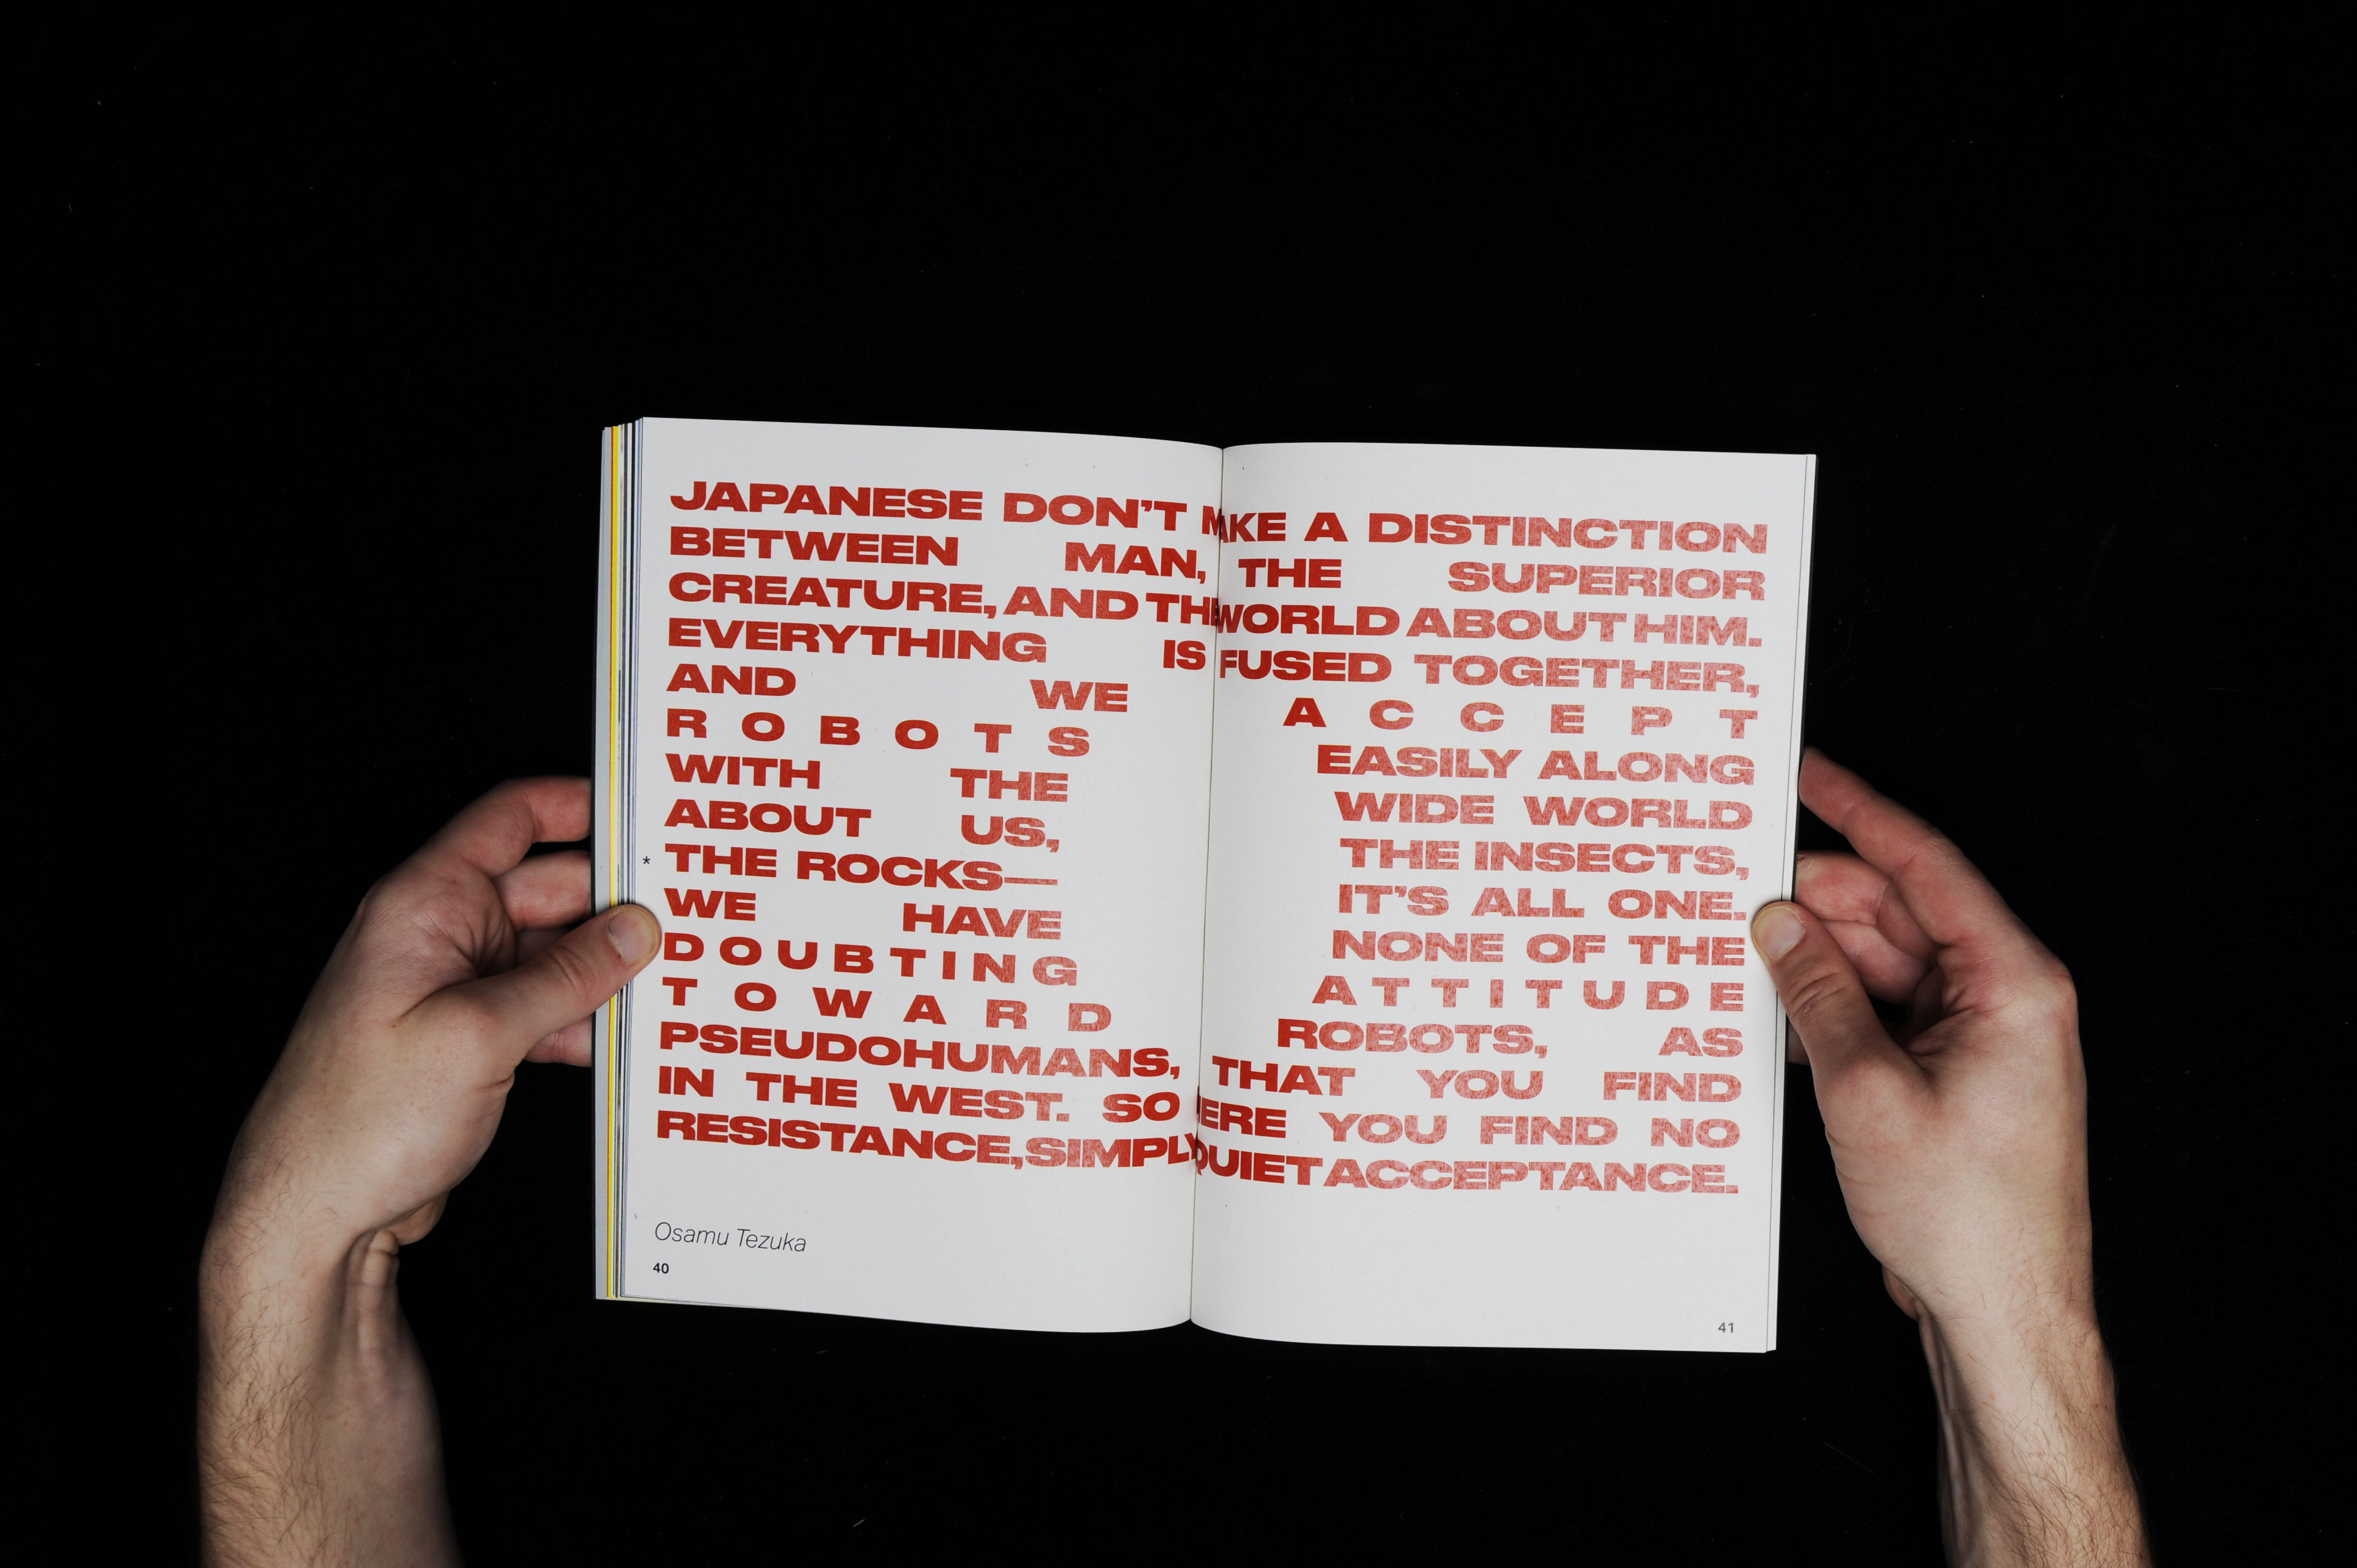 JAPANESE DON'T MAKE A DISTINCTION
BETWEEN MAN, THE SUPERIOR
CREATURE, AND THE WORLD ABOUT HIM.
EVERYTHING IS FUSED TOGETHER,
AND WE ACCEPT
ROBOTS EASILY ALONG
WITH THE WIDE WORLD
ABOUT US, THE INSECTS,
* THE ROCKS— IT'S ALL ONE.
WE HAVE NONE OF THE
DOUBTING ATTITUDE
TOWARD ROBOTS, AS
PSEUDOHUMANS, THAT YOU FIND
IN THE WEST. SO HERE YOU FIND NO
RESISTANCE, SIMPLY QUIET ACCEPTANCE.
Osamu Tezuka
40
41